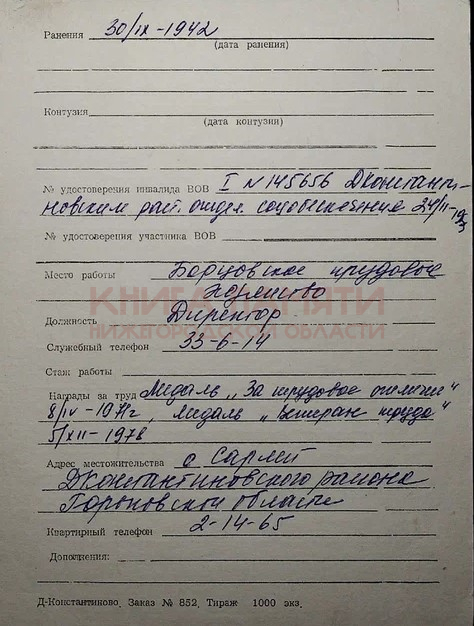 Ранения 30/IX-1942
(дата ранения)
Контузия
(дата контузии)
№ удостоверения инвалида ВОВ I № 145656 Дконстанти-
новским райт. отдел. соцобеспечения 24/II-
№ удостоверения участника ВОВ
Место работы Борцовское прудовое
хозяйство
КНИГА ПАМЯТИ
Должность Директор
НИЖЕГОРОДСКОЙ ОБЛАСТИ
Служебный телефон 33-6-14
Стаж работы
Награды за труд Медаль „За трудовое отличие"
8/IV-1971г, Медаль „Ветеран труда"
5/XII-1978
Адрес местожительства с Сарлей
ДКонстантиновского района
Горьковской области
Квартирный телефон 2-14-65
Дополнения:
Д-Константиново. Заказ № 852. Тираж 1000 экз.